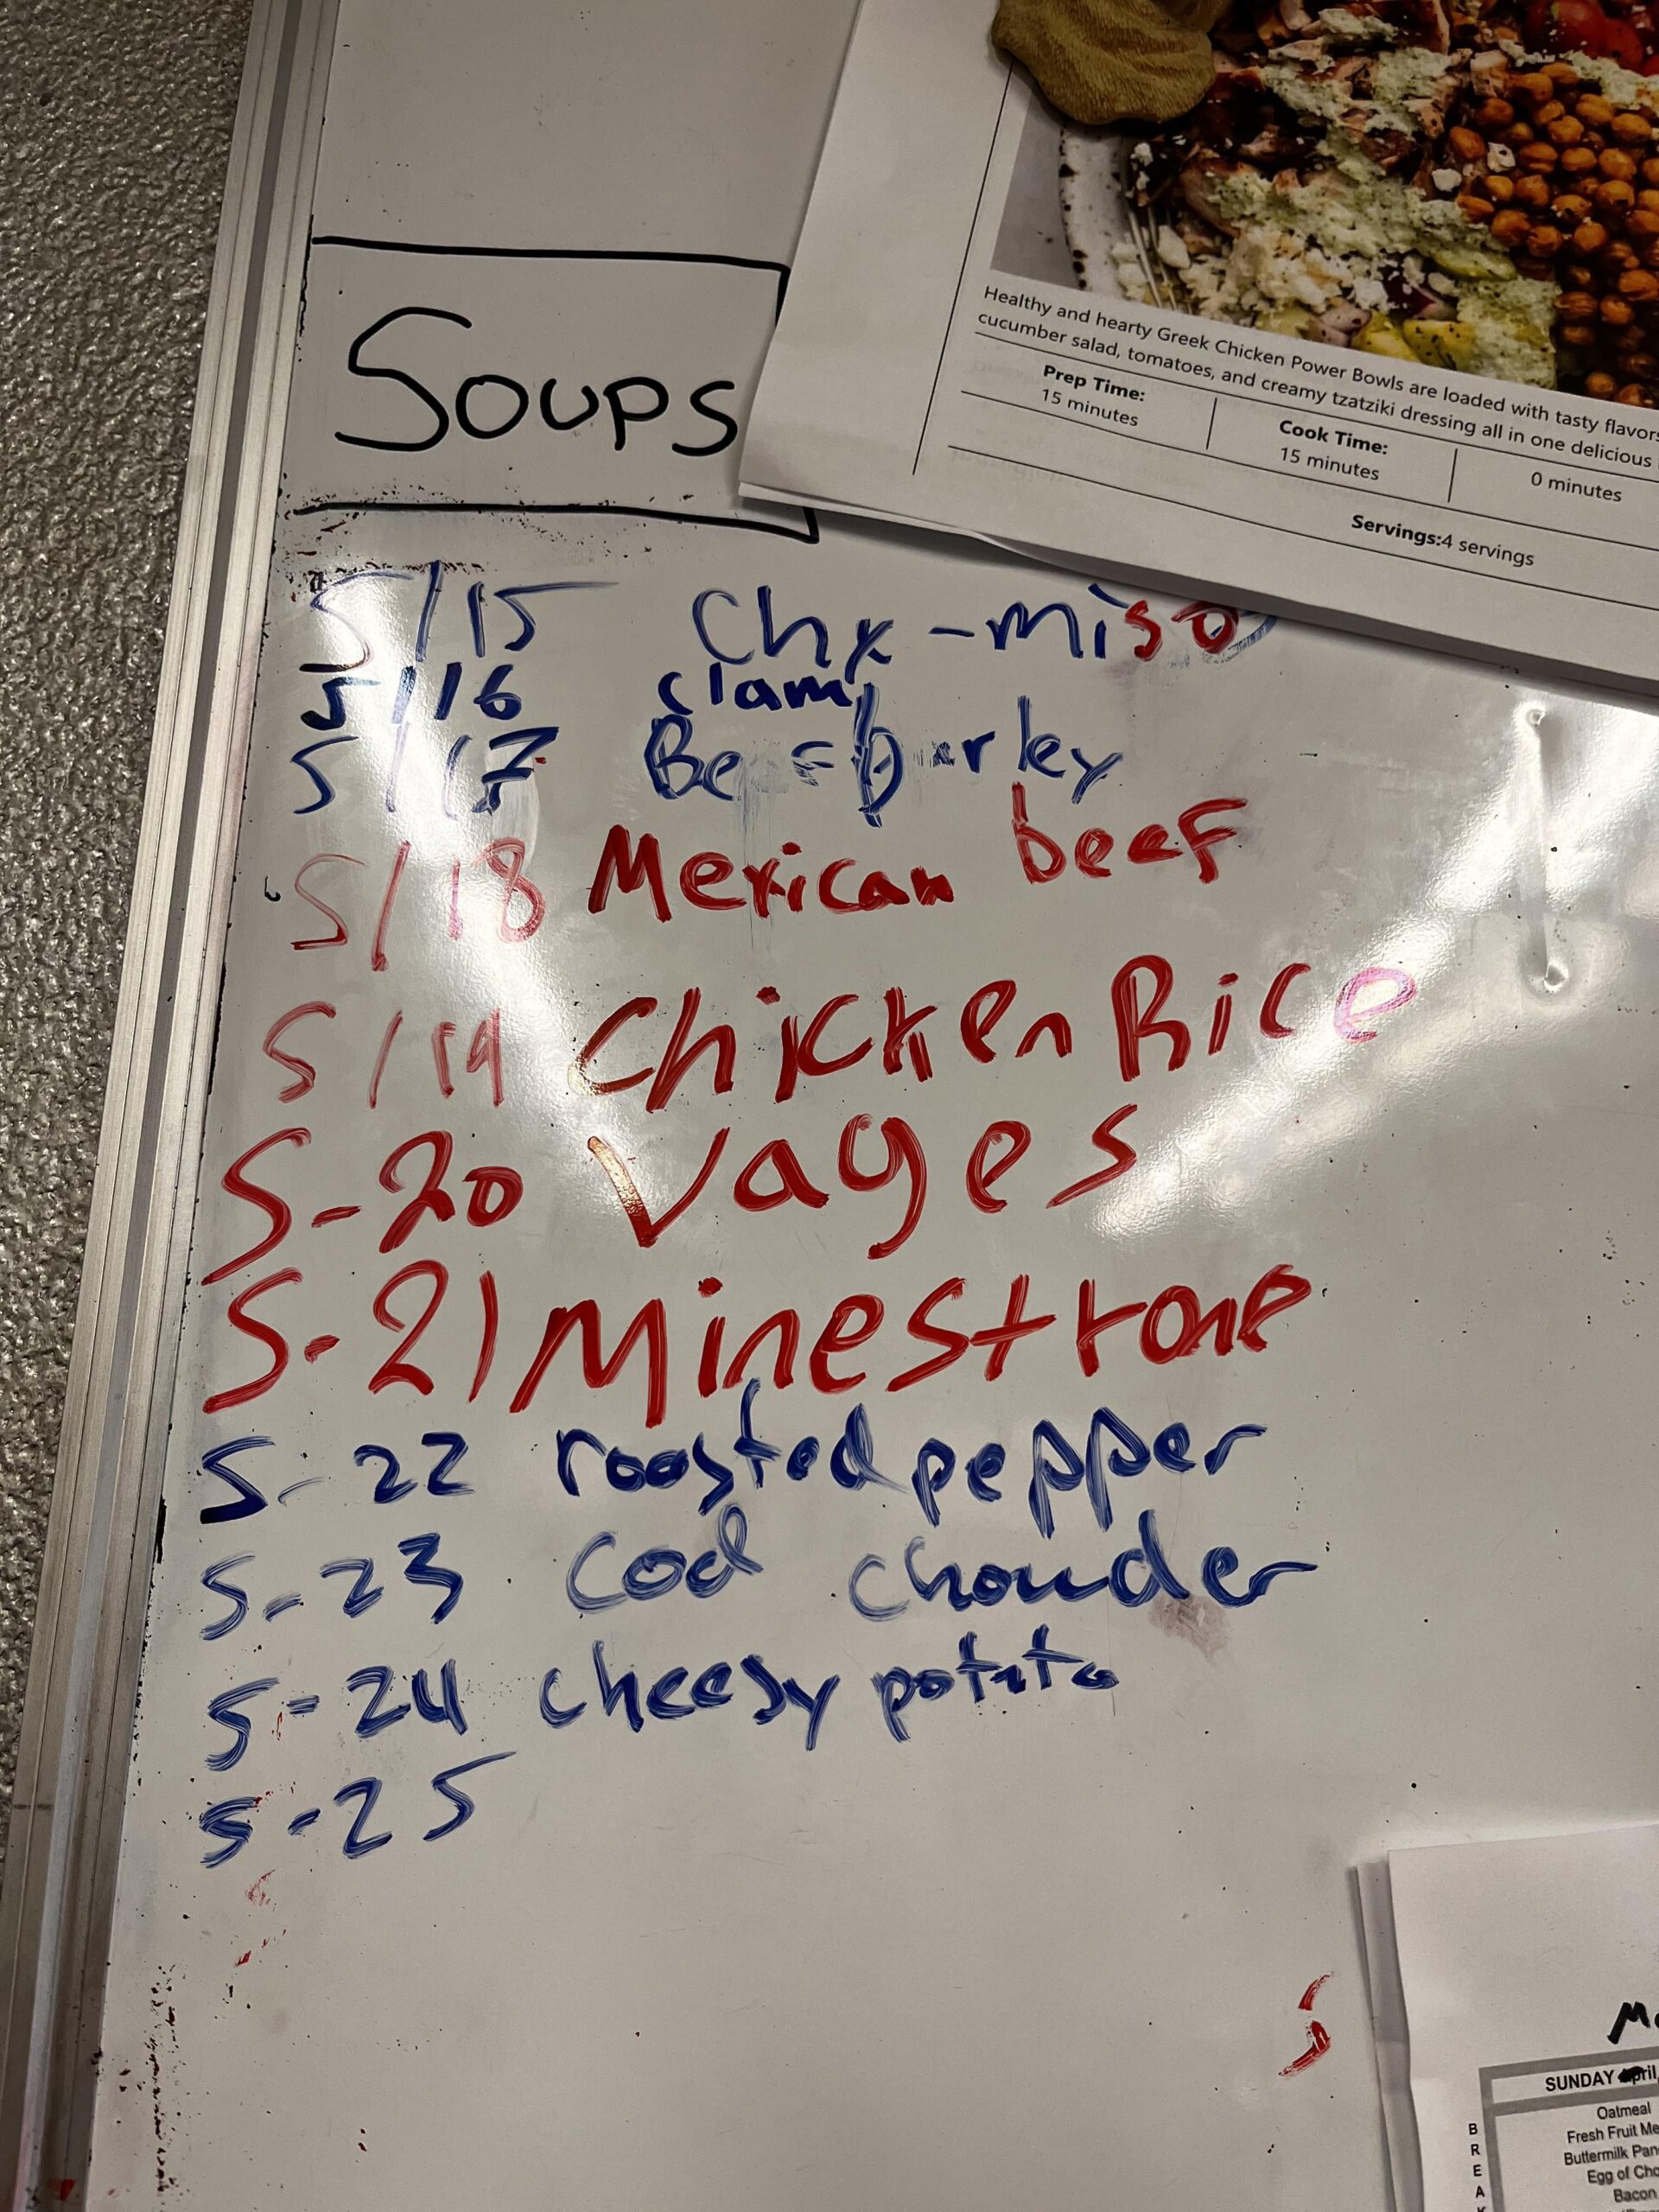 Healthy and hearty Greek Chicken Power Bowls are loaded with tasty flavors
cucumber salad, tomatoes, and creamy tzatziki dressing all in one delicious
Prep Time:
15 minutes
Cook Time:
15 minutes
0 minutes
Servings:4 servings
Soups
5/15 Chx-miso
5/16 clam
5/17 Beef barley
5/18 Mexican beef
5/19 Chicken Rice
5-20 Vages
5-21 Minestrone
5-22 roasted pepper
5-23 Cod chowder
5-24 cheesy potato
5-25
SUNDAY
Oatmeal
Fresh Fruit
Buttermilk
Egg of
Bacon